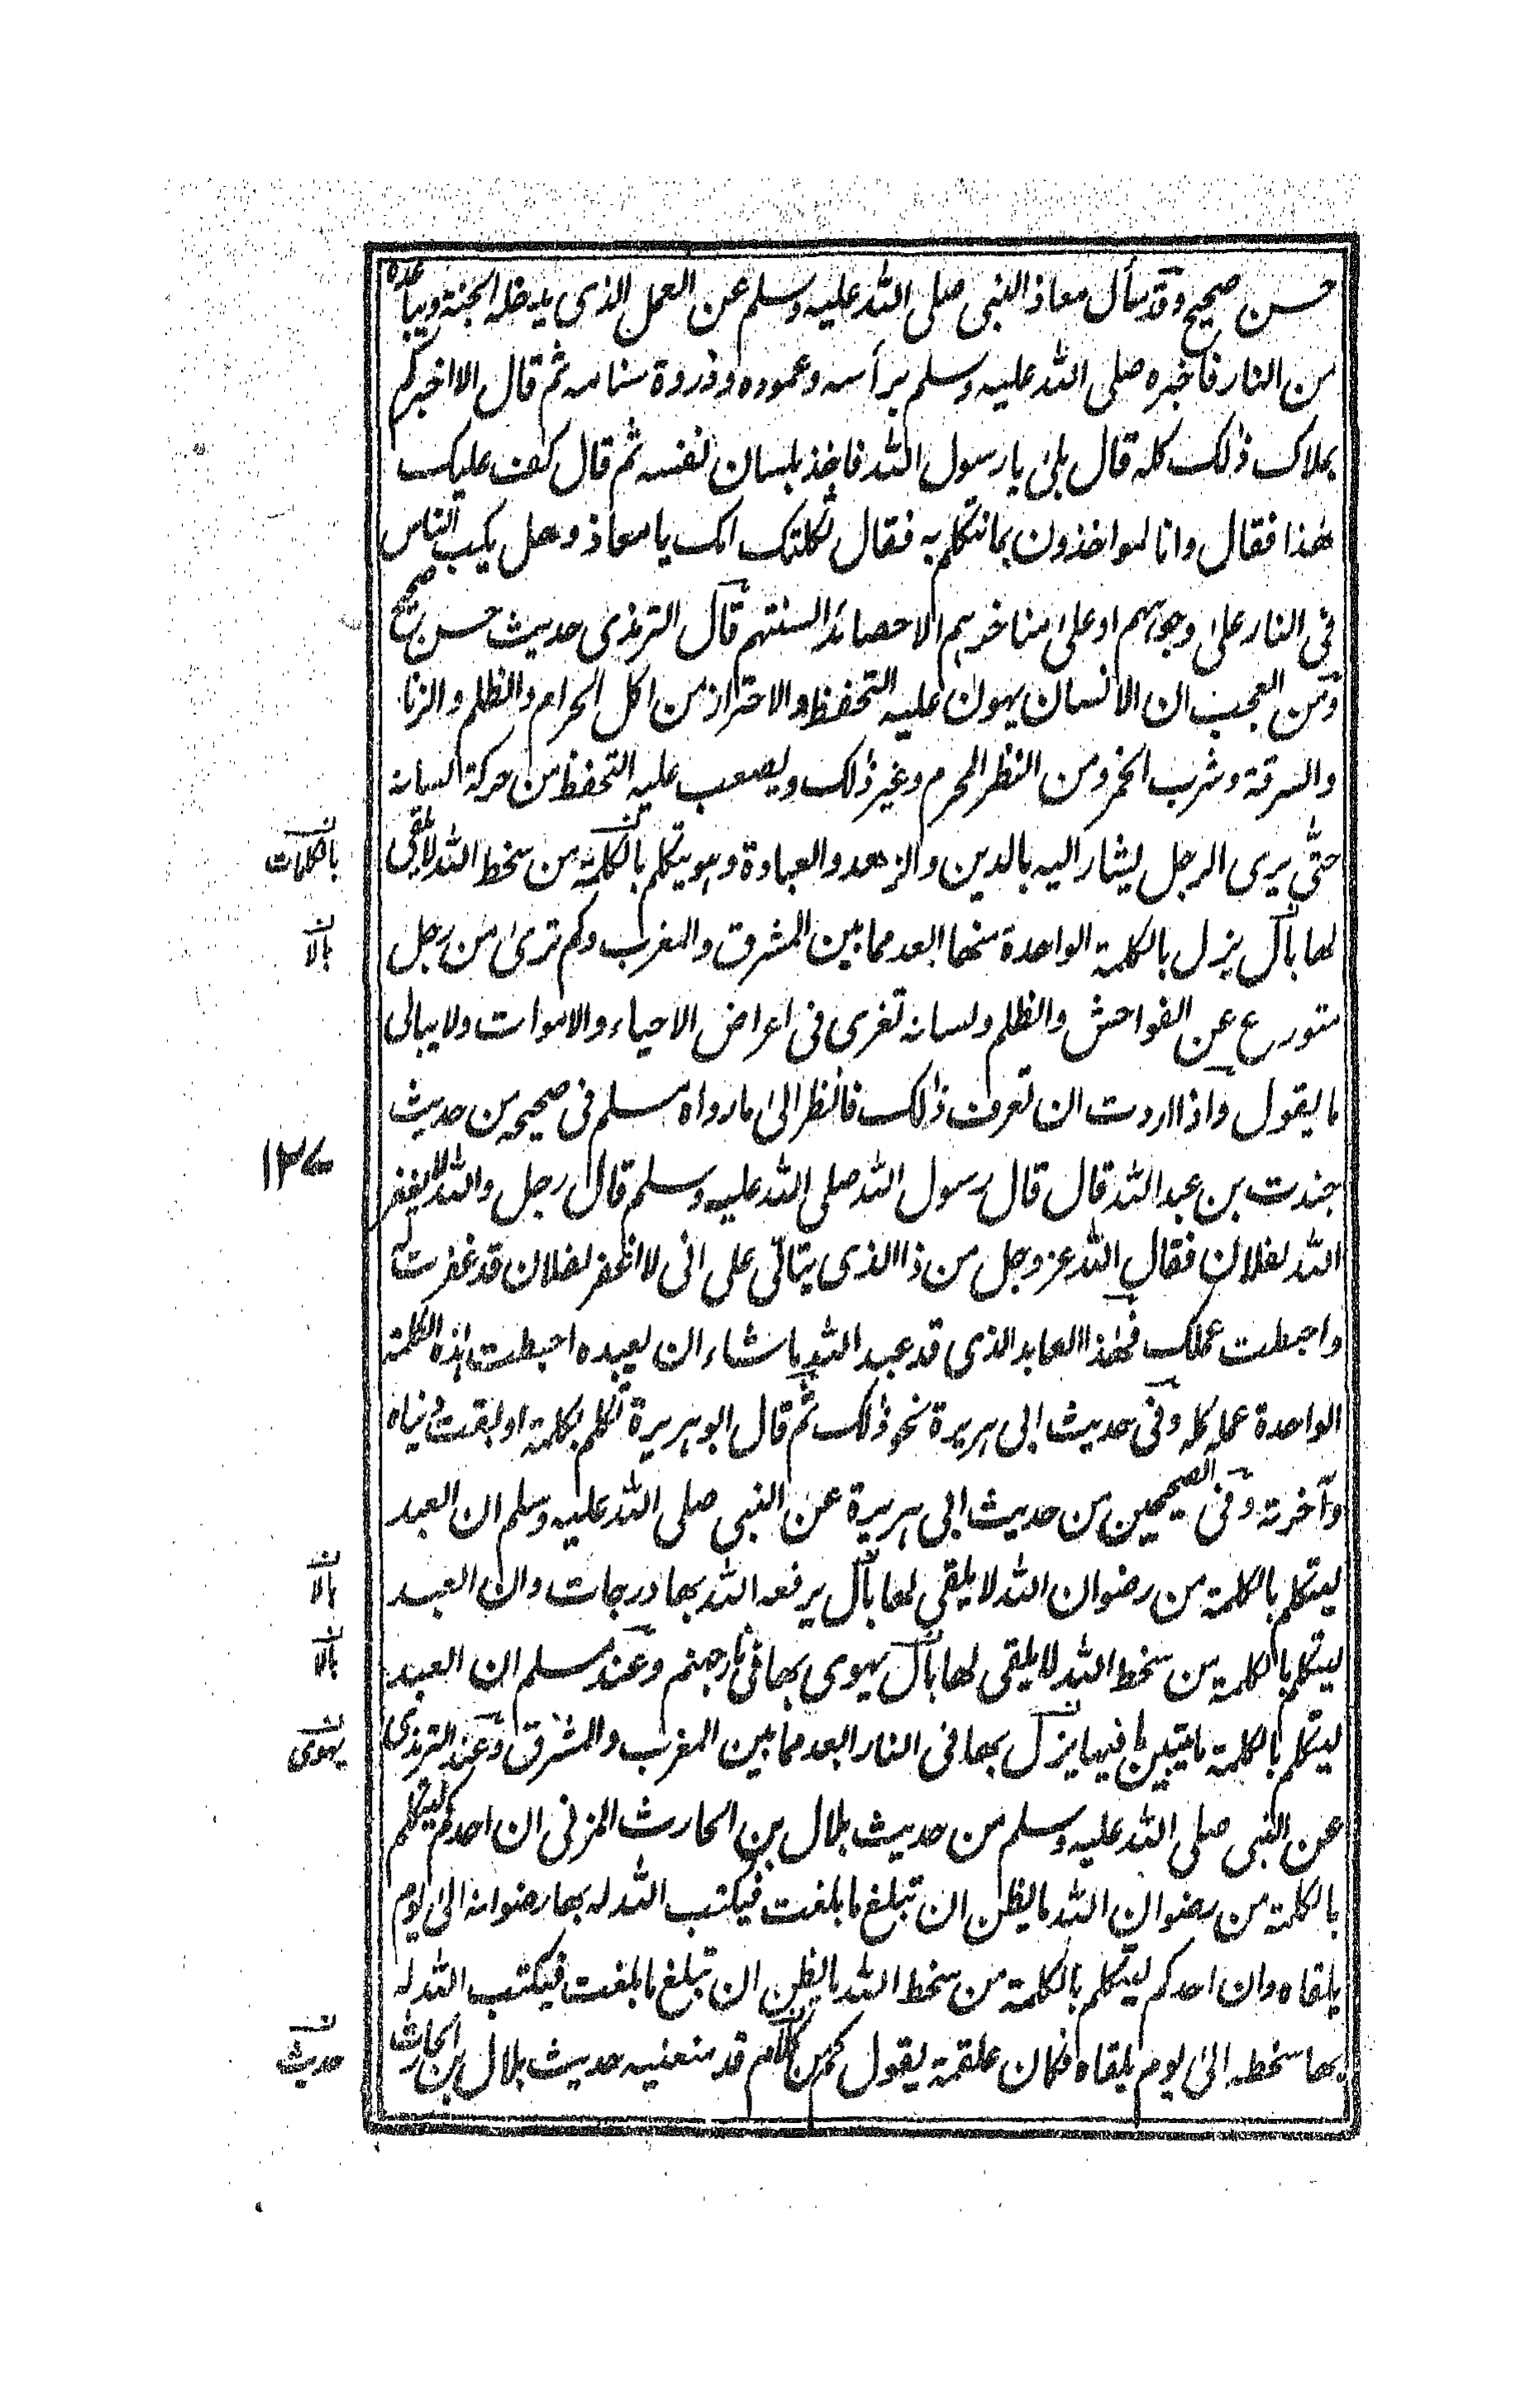 حسن صحيح وقد سأل معاذ النبى صلى الله عليه وسلم عن العمل الذى يدخله الجنة ويباعده
من النار فاخبره صلى الله عليه وسلم برأسه وعموده وذروة سنامه ثم قال الا اخبركم
بملاك ذلك كله قال بلى يا رسول الله فاخذ بلسان نفسه ثم قال كف عليك
هذا فقال وانا لمواخذون بما نتكلم به فقال ثكلتك امك يا معاذ وهل يكب الناس
فى النار على وجوههم او على مناخرهم الا حصائد السنتهم قال الترمذى حديث حسن صحيح
ومن العجب ان الانسان يهون عليه التحفظ والاحتراز من اكل الحرام والظلم والزنا
والسرقة وشرب الخمر ومن النظر المحرم وغير ذلك ويصعب عليه التحفظ من حركة لسانه
حتى يرى الرجل يشار اليه بالدين والزهد والعبادة وهو يتكلم بالكلمة من سخط الله لا يلقى
بالكلمات
لها بال ينزل بالكلمة الواحدة منها ابعد مما بين المشرق والمغرب وكم ترى من رجل
بالا
متورع عن الفواحش والظلم ولسانه تفرى فى اعراض الاحياء والاموات ولا يبالى
ما يقول واذا اردت ان تعرف ذلك فانظر الى ما رواه مسلم فى صحيحه من حديث
١٣٧
جندب بن عبد الله قال قال رسول الله صلى الله عليه وسلم قال رجل والله لا يغفر
الله لفلان فقال الله عز وجل من ذا الذى يتالى على انى لا اغفر لفلان قد غفرت له
واحبطت عملك فهذا العابد الذى قد عبد الله ما شاء ان يعبده احبطت هذه الكلمة
الواحدة عمله كله وفى حديث ابى هريرة نحو ذلك ثم قال ابو هريرة تكلم بكلمة اوبقت دنياه
وآخرته وفى الصحيحين من حديث ابى هريرة عن النبى صلى الله عليه وسلم ان العبد
ليتكلم بالكلمة من رضوان الله لا يلقى لها بال يرفعه الله بها درجات وان العبد
بالا
ليتكلم بالكلمة من سخط الله لا يلقى لها بال يهوى بها فى نار جهنم وعند مسلم ان العبد
بالا
ليتكلم بالكلمة ما يتبين ما فيها ينزل بها فى النار ابعد مما بين المغرب والمشرق وعند الترمذى
يهوى
عن النبى صلى الله عليه وسلم من حديث بلال بن الحارث المزنى ان احدكم ليتكلم
بالكلمة من رضوان الله ما يظن ان تبلغ ما بلغت فيكتب الله له بها رضوانه الى يوم
يلقاه وان احدكم ليتكلم بالكلمة من سخط الله ما يظن ان تبلغ ما بلغت فيكتب الله له
بها سخطه الى يوم يلقاه فكان علقمة يقول كم من كلام قد منعنيه حديث بلال بن الحارث
حديث